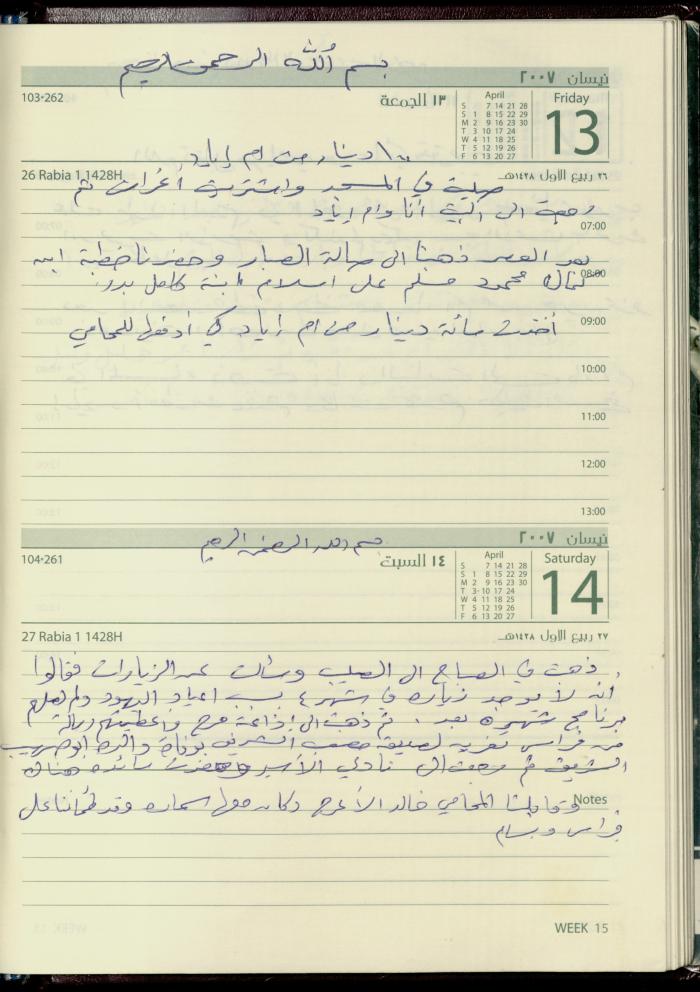 بسم الله الرحمن الرحيم
نيسان ٢٠٠٧
103-262
١٣ الجمعة
April
S 7 14 21 28
S 1 8 15 22 29
M 2 9 16 23 30
T 3 10 17 24
W 4 11 18 25
T 5 12 19 26
F 6 13 20 27
Friday
13
دينار من ام إياد
26 Rabia 1 1428H
٢٦ ربيع الاول ١٤٢٨هـ
صلية في المسجد واشتريت أغراض ثم
رجعة الى البية أنا وام إياد
07:00
بعد العصر ذهبنا الى صالة الصبار وحضرنا خطبة ابن
08:00
محمود مسلم على اسلام ابنة كامل بدر
أخذت مائة دينار من ام إياد كي أدفعها للمحامي
09:00
10:00
11:00
12:00
13:00
نيسان ٢٠٠٧
بسم الله الرحمن الرحيم
104-261
١٤ السبت
April
S 7 14 21 28
S 1 8 15 22 29
M 2 9 16 23 30
T 3 10 17 24
W 4 11 18 25
T 5 12 19 26
F 6 13 20 27
Saturday
14
27 Rabia 1 1428H
٢٧ ربيع الاول ١٤٢٨هـ
ذهبت في الصباح الى الصليب وسألت عن الزيارات فقالوا
انه لا يوجد زيارة في شهر ٤ بسبب اعياد اليهود ولم
برنامج شهر ٥ بعد. ثم ذهبت الى إذاعة وأعطيتهم رسالة
من فراس تعزيه لصديقة مصعب الشريف بوفاة والده ابو
الشريف ثم رجعت الى نادي الأسير هناك
Notes
وقابلنا المحامي خالد الأعرج وكان وقد طمأننا على
فراس وبسام
WEEK 15